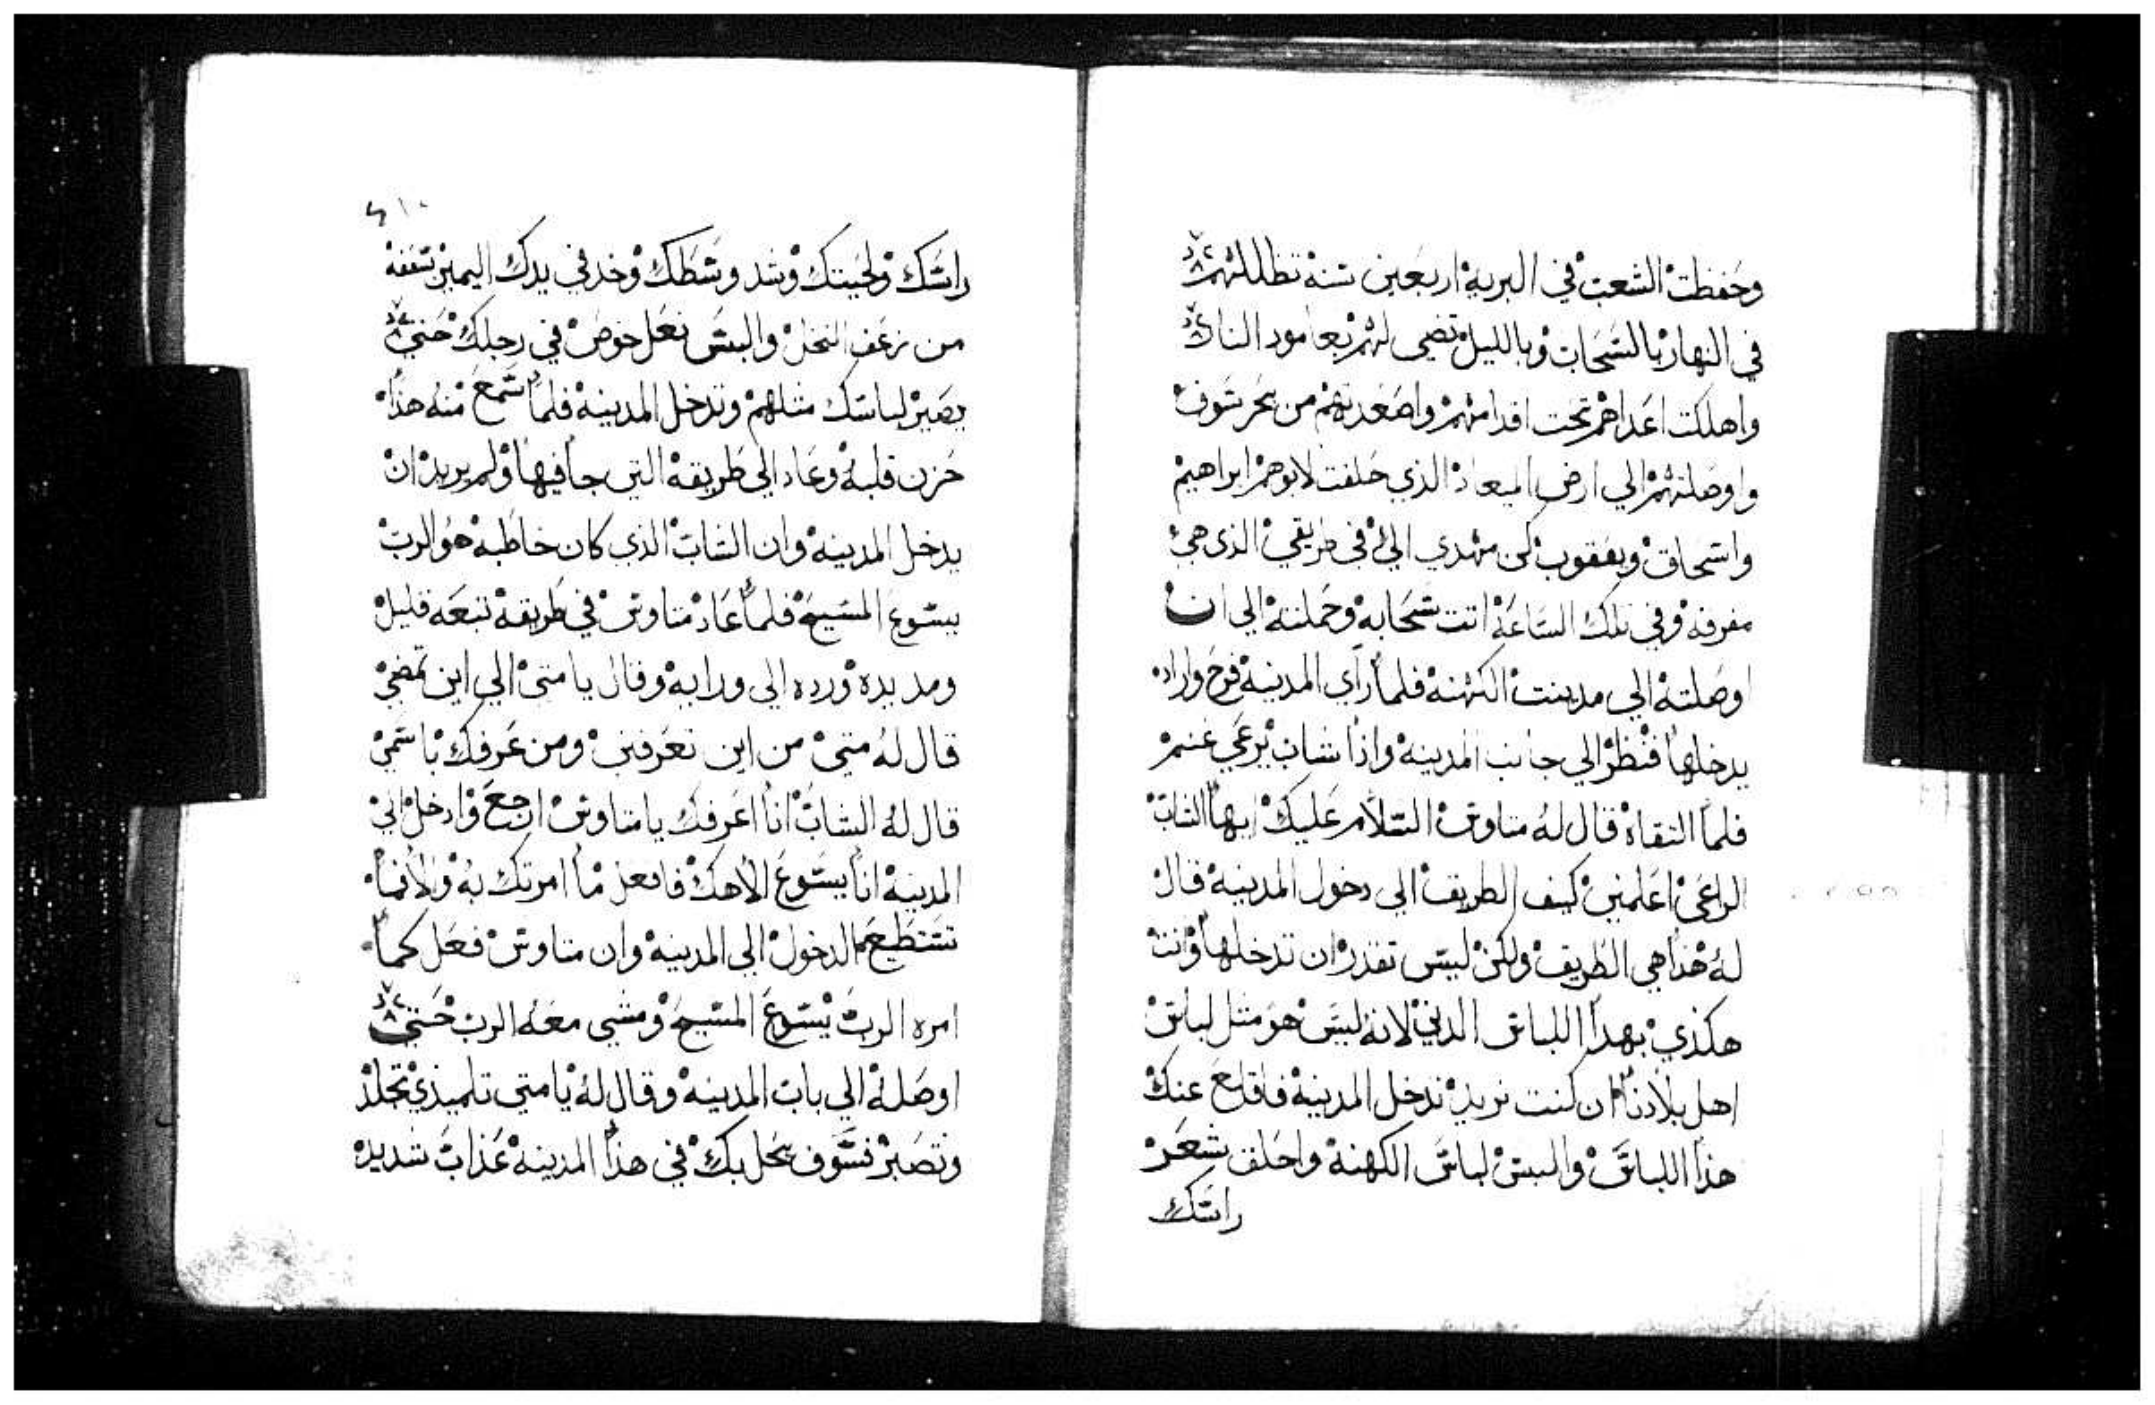 وحفظت الشعب في البرية اربعين سنة تظللهم
في النهار بالسحاب وبالليل تضي لهم بعامود النار
واهلكت اعداهم تحت اقدامهم واصعدتهم من بحر سوف
واوصلتهم الي ارض الميعاد الذي حلفت لابوهم ابراهيم
واسحاق ويعقوب كن مهدي الي في طريقي الذي هي
مفرقه وفي تلك الساعة اتت سحابه وحملته الي ان
اوصلته الي مدينت الكهنة فلما رأي المدينة فرح واراد
يدخلها فنظر الي جانب المدينة واذا شاب يرعي غنم
فلما التقاه قال له متاوس السلام عليك ايها الشاب
الراعي اعلمني كيف الطريف الي دخول المدينة قال
له هذا هي الطريف ولكن ليس تقدر ان تدخلها وانت
هكذي بهدا اللباس الدني لانه ليس هو مثل لباس
اهل بلادنا ان كنت تريد تدخل المدينة فاقلع عنك
هذا اللباس والبس لباس الكهنة واحلق شعر
راسك
٢١٠
راسك ولحيتك وشد وسطك وخد في يدك اليمين سعفه
من زعف النخل والبس نعل خوص في رجلك حتي
يصير لباسك مثلهم وتدخل المدينة فلما سمع منه هذا
حزن قلبه وعاد الي طريقه التي جا فيها ولم يريد ان
يدخل المدينة وان الشاب الذي كان خاطبه هو الرب
يسوع المسيح فلما عاد متاوس في طريقه تبعه قليل
ومد يده ورده الي ورايه وقال يا متي الي اين تمضي
قال له متي من اين تعرفني ومن عرفك باسمي
قال له الشاب انا اعرفك يا متاوس ارجع وادخل الي
المدينة انا يسوع الاهك فافعل ما امرتك به والا فما
تستطيع الدخول الي المدينة وان متاوس فعل كما
امره الرب يسوع المسيح ومشي معه الرب حتي
اوصله الي باب المدينة وقال له يا متي تلميذي تجلد
وتصبر فسوف يحل بك في هذا المدينة عذاب شديد